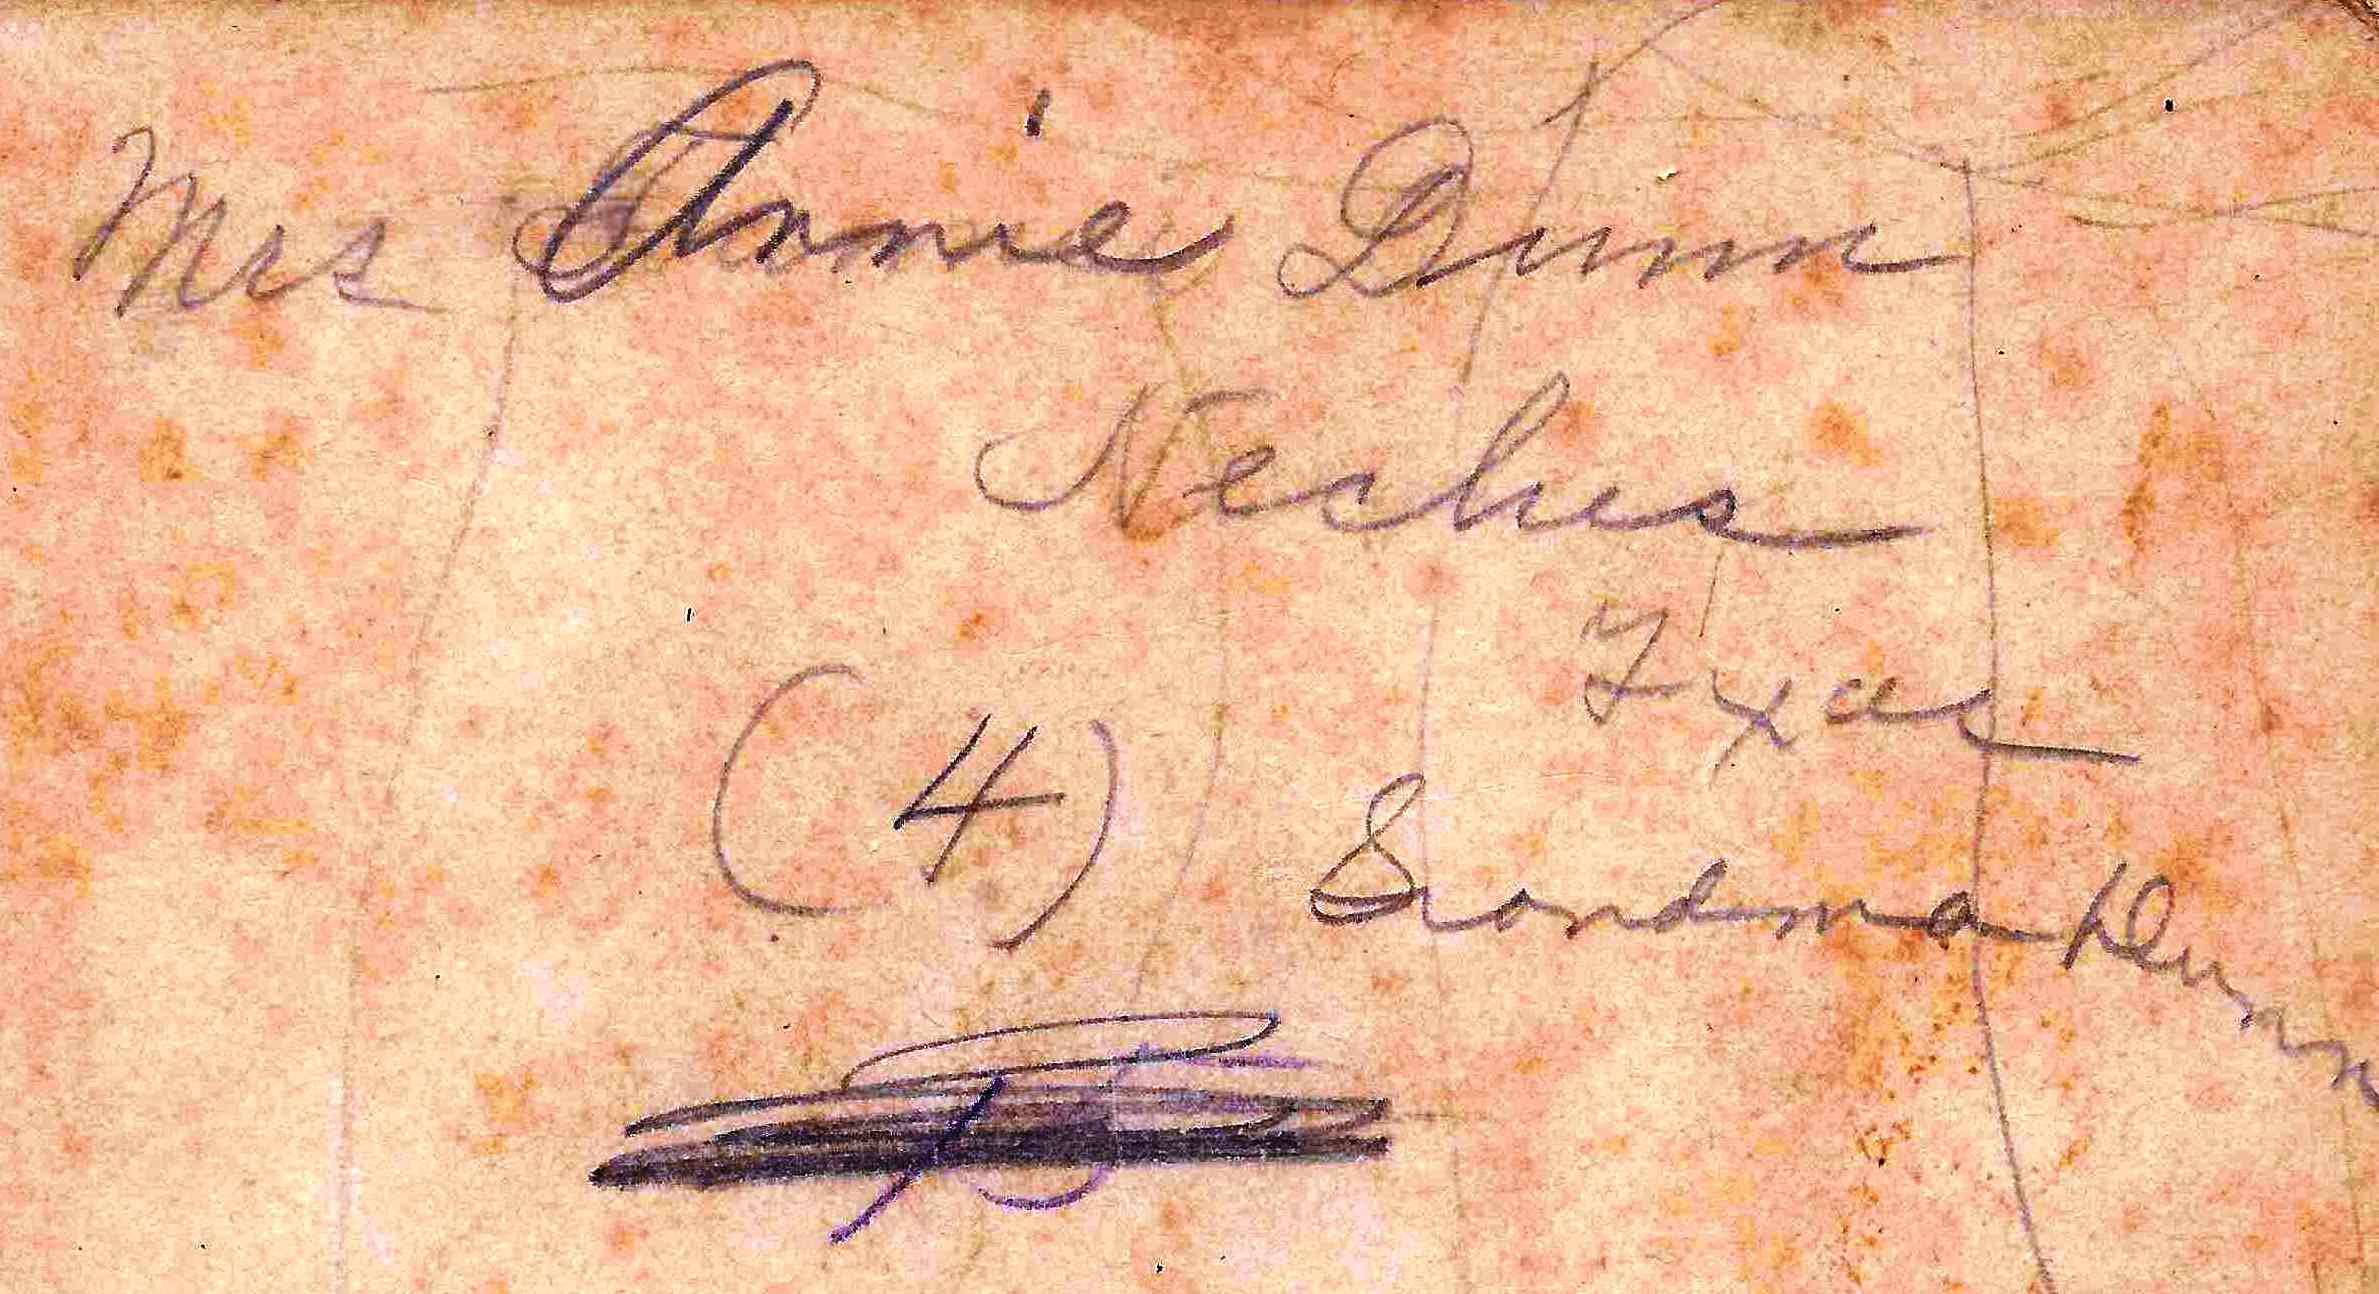 Mrs Annie Dunn
Neches
Txas
(4)
Grandma Dunn